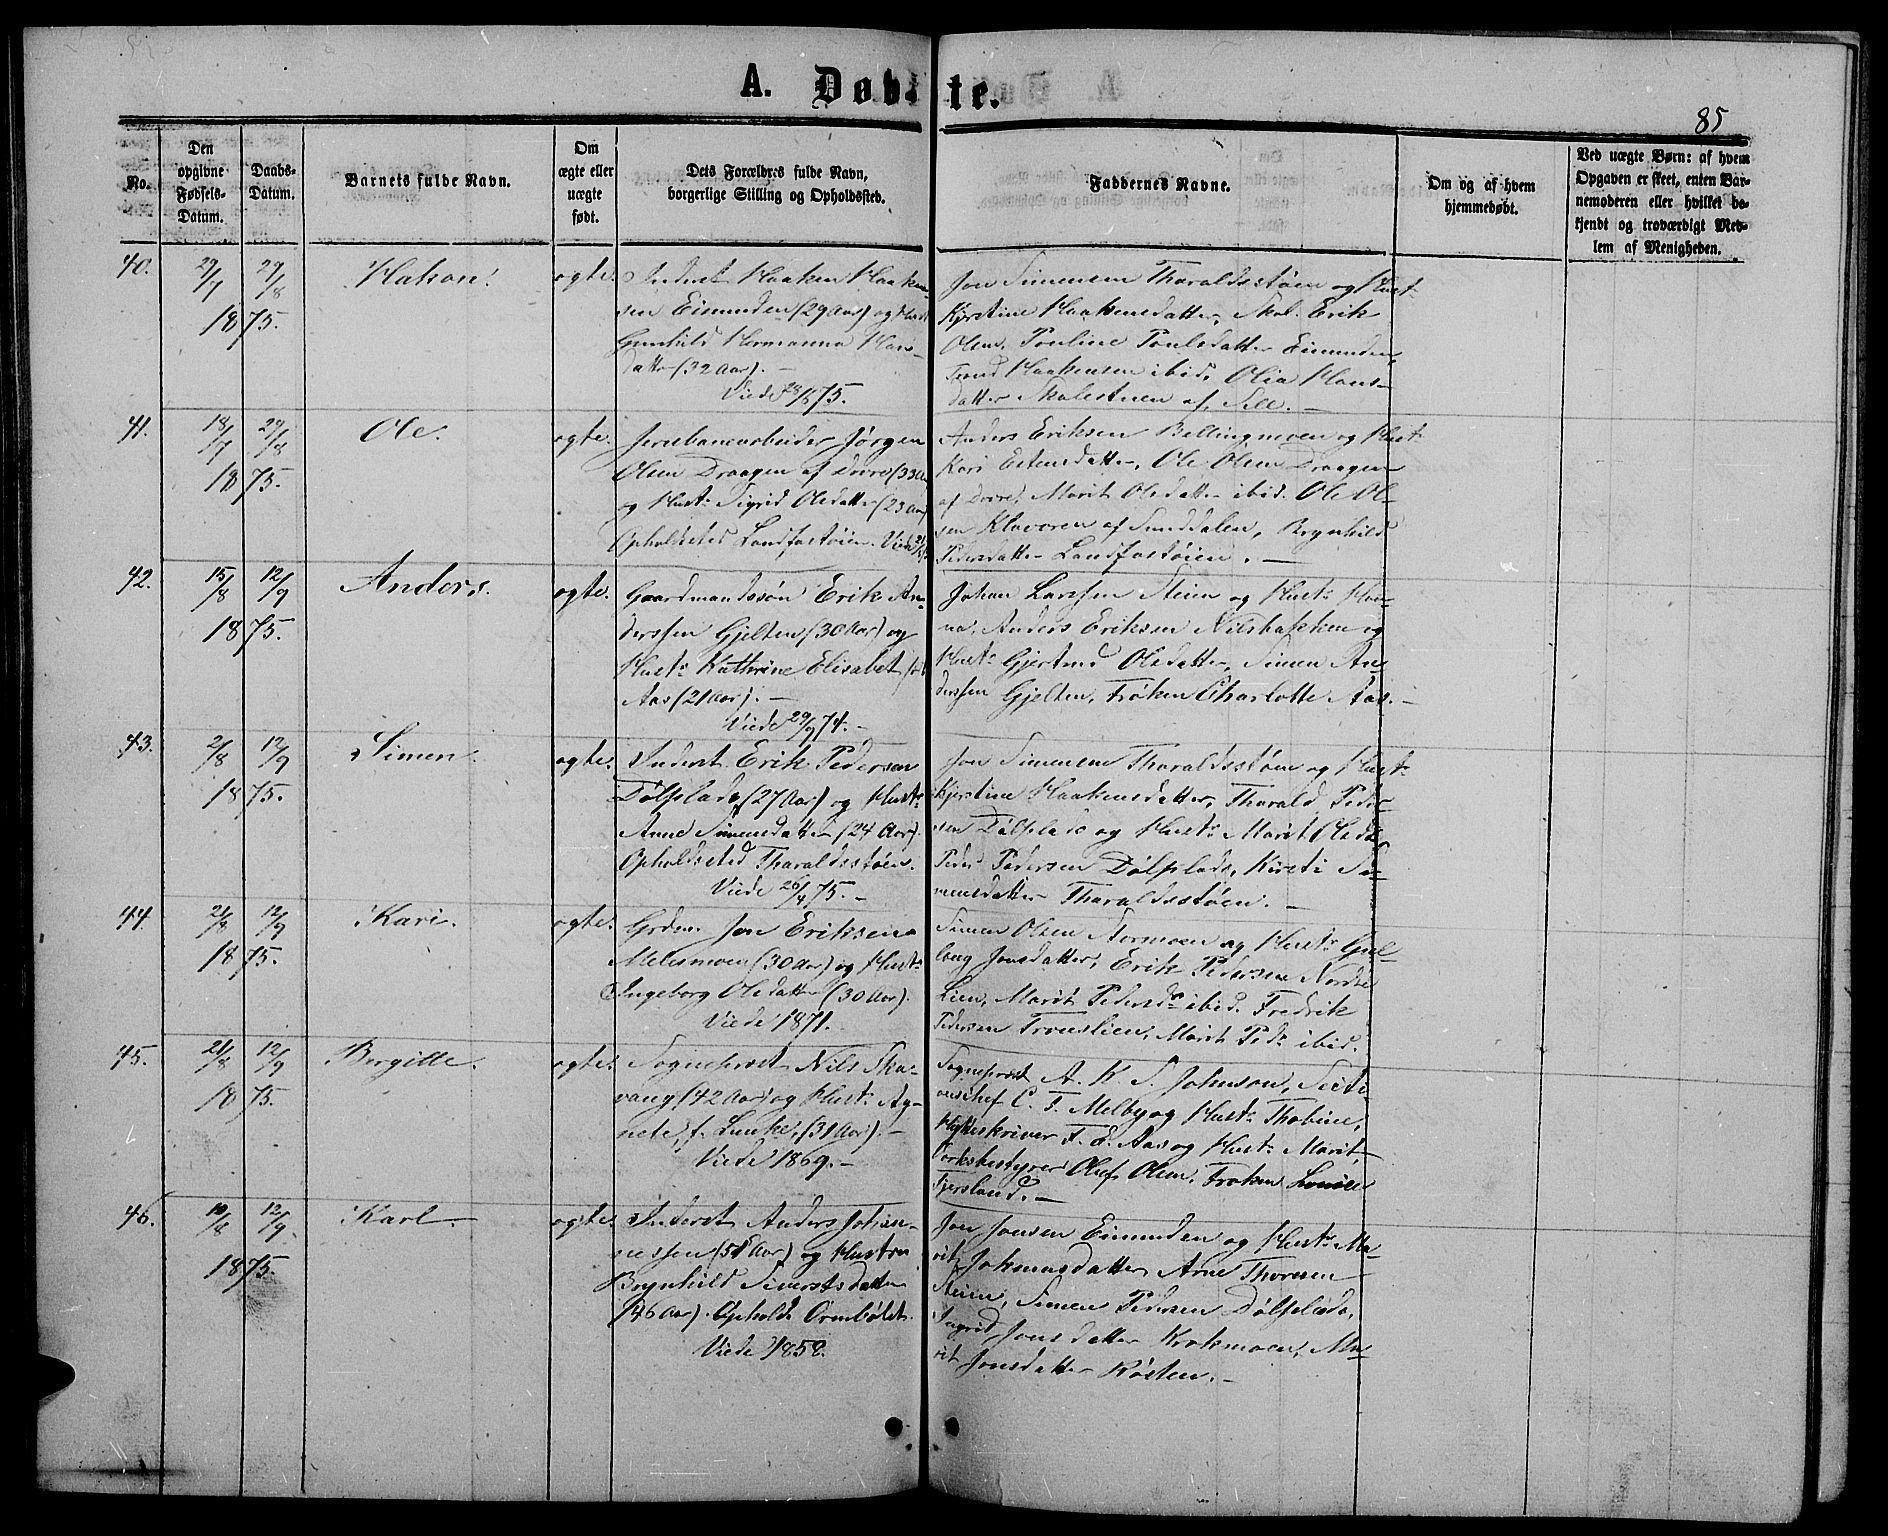 A. Døbte.
85
No.
Den opgivne Fødsels-Datum.
Daabs-Datum.
Barnets fulde Navn.
Om ægte eller uægte født.
Dets Forældres fulde Navn, borgerlige Stilling og Opholdssted.
Faddernes Navne.
Om og af hvem hjemmedøbt.
Ved uægte Børn: af hvem
Opgaven er skeet, enten Bar-
nemoderen eller hvilket be-
kjendt og troværdigt Med-
lem af Menigheden.
40. 29/7 29/8 1875. Hakon. ægte.
Inderst Haaken Haaken-
sen Eimunden (29 Aar) og Hust
Gunhild Hermanna Hans-
datter (32 Aar). —
Viede 75.
Jon Simensen Tharaldsstøen og Hust
Kjerstine Haakensdatter, Erik
Olsen, Pouline Poulsdatter Eimunden,
Trond Haakensen ibid, Olia Hans-
datter af Sell. —
41. 18/7 29/8 1875. Ole. ægte.
Jernbanearbeider Jørgen
Olsen Draagen af Dovre (33 Aar)
og Hustr Sigrid Olsdatter (23 Aar)
Opholdssted Landfastøien. Viede
Anders Eriksen Bellingmoen og Hust
Kari Estensdatter, Ole Olsen Draagen
af Dovre, Marit Olsdatter ibid. Ole Ol-
sen af Sunddalen, Brynhild
Pedersdatter Landfastøien. —
42. 15/8 12/9 1875. Anders. ægte.
Gaardmandssøn Erik An-
derssen Gjelten (30 Aar) og
Hustr Kathrine Elisabet født
Aas (21 Aar). —
Viede 29/9 74. —
Johan Larssen Steien og Hustr Han-
na, Anders Eriksen Nilsbakken og
Hustr Gjertrud Olsdatter, Simen An-
derssen Gjelten, Frøken Charlotte Aas. —
43. 2/8 12/9 1875. Simen. ægte.
Inderst Erik Pedersen
Dølplads (27 Aar) og Hustr
Anne Simensdatter (24 Aar).
Opholdssted Tharaldsstøen.
Viede 26/4 75. —
Jon Simensen Tharaldsstøen og Hustr
Kjerstine Haakensdatter, Tharald Peder-
sen Dølplads og Hustr Marit Olsd
Peder Pedersen Dølplads, Kirsti Si-
mensdatter Tharaldsstøen. —
44. 21/8 12/9 1875. Kari. ægte.
Grdm. Jon Eriksen
Melesmoen (30 Aar) og Hustr
Ingeborg Olsdatter (30 Aar).
Viede 1871. —
Simen Olsen Normoen og Hustr Gul-
laug Jonsdatter, Erik Pedersen Nordre
Lien, Marit Pedersdr ibid. Fredrik
Pedersen Tronslien, Marit Pedr ibid.
45. 21/8 12/9 1875. Bergitte. ægte.
Sogneprest Nils Ska-
vang (42 Aar) og Hustr Ag-
nete, f. Lunke, (31 Aar). —
Viede 1869. —
Sogneprest A. K. S. Johnson, Secti-
onschef C. F. Melby og Hustr Thobine,
F. E. Aas og Hustr Marit,
Værksbestyrer Oluf Olsen, Frøken Louise
Fjersland. —
46. 10/8 12/9 1875. Karl. ægte.
Inderst Anders Johan-
nessen (51 Aar) og Hustru
Brynhild Siverstsdatter
(46 Aar). Opholds Ormbølet.
Viede 1858.
Jon Jonsen Eimunden og Hustr Ma-
rit Johannesdatter, Arne Thoresen
Steien, Simen Pedersen Dølplads,
Ingrid Jonsdatter Krokmoen, Ma-
rit Jonsdatter Røsten. —